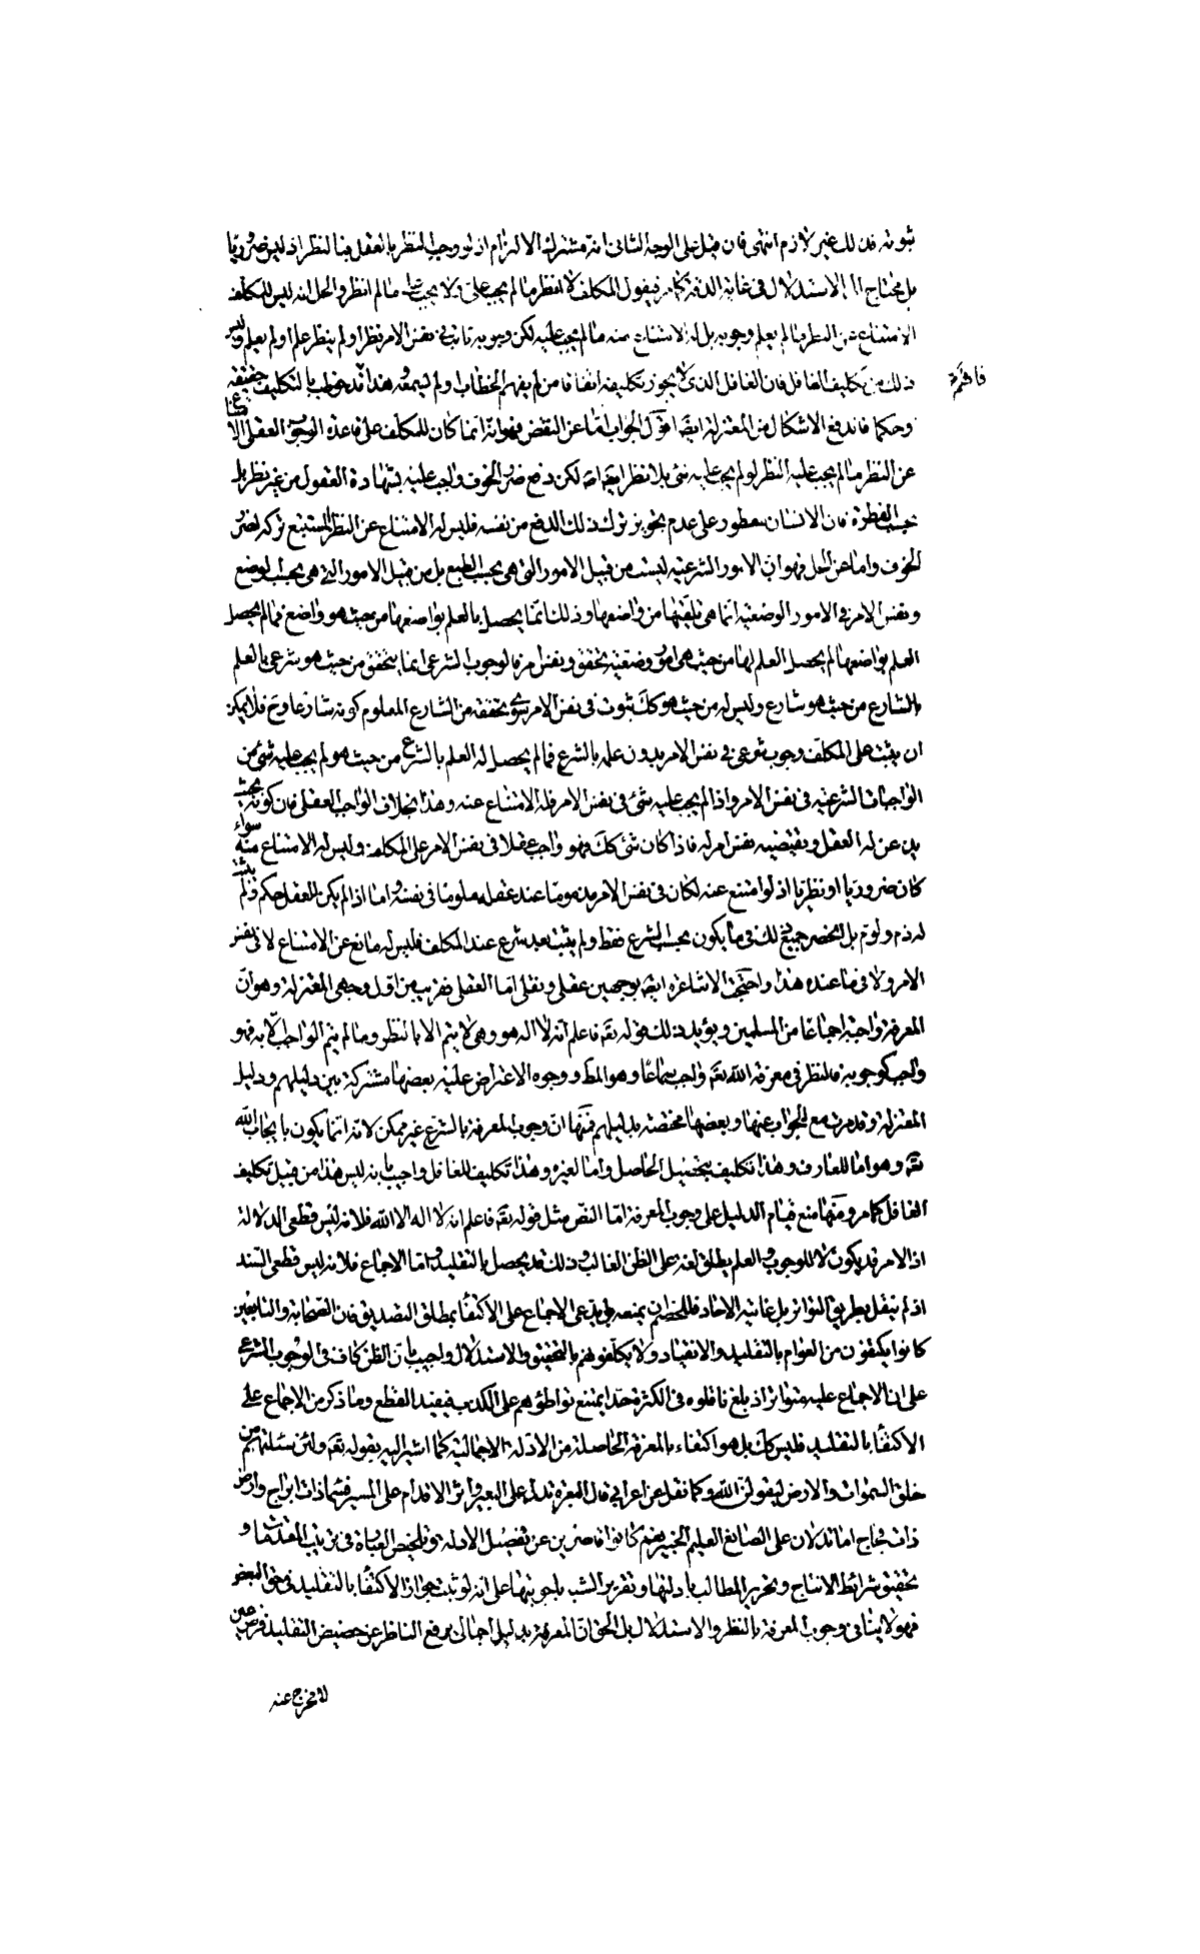 ثبوته فذلك غير لازم انتهى فان قيل على الوجه الثانى انه مشترك الالزام اذ لو وجب النظر بالعقل فبالنظر اذ ليس ضروريا
بل محتاج الى الاستدلال فى غاية الدقة كما مر فيقول المكلف لا انظر ما لم يجب على ولا يجب على ما لم انظر والحل انه ليس للمكلف
الامتناع عن النظر ما لم يعلم وجوبه بل له الامتناع عنه ما لم يجب عليه لكن وجوبه ثابت فى نفس الامر نظر او لم ينظر علم او لم يعلم وليس
ذلك من تكليف الغافل فان الغافل الذى لا يجوز تكليفه اتفاقا من لم يفهم الخطاب او لم يسمعه وهذا قد خوطب بالتكليف حقيقة
فافهم
وحكما فاندفع الاشكال من المعتزلة ايضا اقول الجواب اما عن النقض فهو انه انما كان للمكلف على قاعدة الوجوب العقلى الامتناع
عن النظر ما لم يجب عليه النظر لو لم يجب عليه شئ بلا نظر ايضا لكن دفع ضرر الخوف واجب عليه بشهادة العقول من غير نظر بل
بحسب الفطرة فان الانسان مفطور على عدم تجويز ترك ذلك الدفع من نفسه فليس له الامتناع عن النظر المستتبع تركه لضرر
الخوف واما عن الحل فهو ان الامور الشرعية ليست من قبيل الامور التى هى بحسب الطبع بل من قبيل الامور التى هى بحسب الوضع
ونفس الامر فى الامور الوضعية انما هى تلقيها من واضعها وذلك انما يحصل بالعلم بواضعها من حيث هو واضع فما لم يحصل
العلم بواضعها لم يحصل العلم لها من حيث هى امور وضعية تحقق ونفس امر فالوجوب الشرعى انما يتحقق من حيث هو شرعى بالعلم
بالشارع من حيث هو شارع وليس له من حيث هو كك ثبوت فى نفس الامر سوى تحققه من الشارع المعلوم كونه شارعا وح فلا يمكن
ان يثبت على المكلف وجوب شرعى فى نفس الامر بدون علمه بالشرع فما لم يحصل له العلم بالشرع من حيث هو لم يجب عليه شئ من
الواجبات الشرعية فى نفس الامر واذا لم يجب عليه شئ فى نفس الامر فله الامتناع عنه وهذا بخلاف الواجب العقلى فان كونه بحيث
يذعن له العقل ويقتضيه نفس امر له فاذا كان شئ كك فهو واجب عقلا فى نفس الامر على المكلف وليس له الامتناع منه سواء
كان ضروريا او نظريا اذ لو امتنع عنه لكان فى نفس الامر مذموما عند عقله ملوما فى نفسه واما اذا لم يكن للعقل حكم ولم يثبت
له ذم ولوم بل انحصر جميع ذلك فى ما يكون بحسب الشرع فقط ولم يثبت بعد شرع عند المكلف فليس له مانع عن الامتناع لا فى نفس
الامر ولا فى ما عنده هذا واحتجت الاشاعرة ايضا بوجهين عقلى ونقلى اما العقلى فقريب من اول وجهى المعتزلة وهو ان
المعرفة واجبة اجماعا من المسلمين ويؤيد ذلك قوله تعالى فاعلم انه لا اله هو وهى لا يتم الا بالنظر وما لم يتم الواجب الا به فهو
واجب كوجوبه فالنظر فى معرفة الله تعالى واجب سماعا وهو المط ووجوه الاعتراض عليه بعضها مشتركة بين دليلهم ودليل
المعتزلة وقد مرت مع الجواب عنها وبعضها مختصة بدليلهم فمنها ان وجوب المعرفة بالشرع غير ممكن لانه انما يكون بايجاب الله
تعالى وهو اما للعارف وهذا تكليف بتحصيل الحاصل واما لغيره وهذا تكليف للغافل واجيب بانه ليس هذا من قبيل تكليف
الغافل كما مر ومنها منع قيام الدليل على وجوب المعرفة اما النص مثل قوله تعالى فاعلم انه لا اله الا الله فلانه ليس قطعى الدلالة
اذ الامر قد يكون لا للوجوب والعلم يطلق لغة على الظن الغالب وذلك قد يحصل بالتقليد واما الاجماع فلانه ليس قطعى السند
اذ لم ينقل بطريق التواتر بل غايته الاحاد فللخصم ان يمنعه بل يدعى الاجماع على الاكتفاء بمطلق التصديق فان الصحابة والتابعين
كانوا يكتفون من العوام بالتقليد والانقياد ولا يكلفونهم بالتحقيق والاستدلال واجيب بان الظن كاف فى الوجوب الشرعى
على ان الاجماع عليه متواتر اذ بلغ ناقلوه فى الكثرة حدا يمتنع تواطؤهم على الكذب فيفيد القطع وما ذكر من الاجماع على
الاكتفاء بالتقليد فليس كك بل هو اكتفاء بالمعرفة الحاصلة من الادلة الاجمالية كما اشير اليه بقوله تعالى ولئن سئلتهم من
خلق السموات والارض ليقولن الله وكما نقل عن اعرابى قال البعرة تدل على البعير واثر الاقدام على المسير فسماء ذات ابراج وارض
ذات فجاج اما تدلان على الصانع العليم الخبير فهم كانوا قاصرين عن تفصيل الادلة وتلخيص العبارة فى ترتيب المقدمات و
تحقيق شرائط الانتاج وتحرير المطالب بادلتها وتقرير الشبه باجوبتها على انه لو ثبت جواز الاكتفاء بالتقليد فى حق البعض
فهو لا ينافى وجوب المعرفة بالنظر والاستدلال بل الحق ان المعرفة بدليل اجمالى يرفع الناظر عن حضيض التقليد فرض عين
لا مخرج عنه